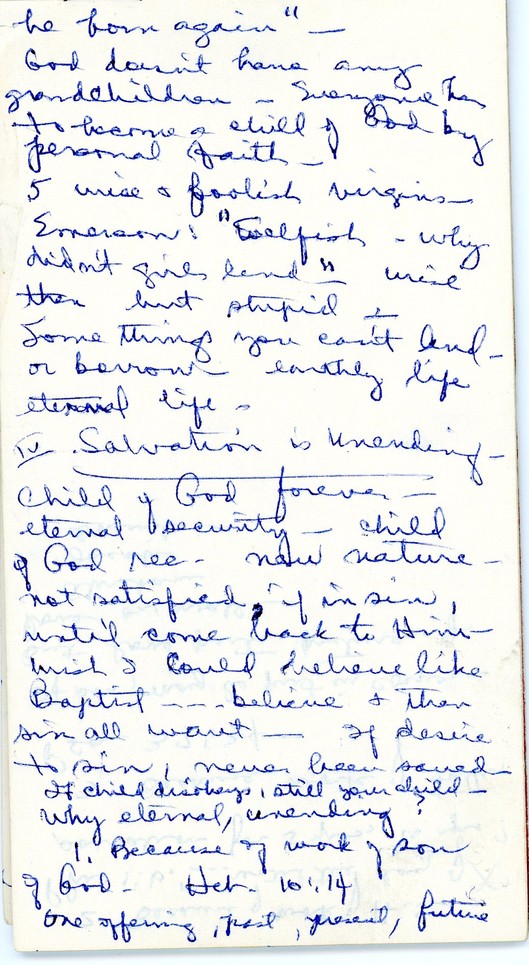 be born again" —
God doesn't have any
grandchildren — Everyone has
to become a child of God by
personal faith —
5 wise & foolish virgins —
Emerson: "Selfish - why
didn't girls lend" — wise
then but stupid —
Some things you can't lend -
or borrow earthly life
eternal life -
IV. Salvation is Unending -
Child of God forever —
eternal security — child
of God rec - new nature -
not satisfied, if in sin,
until come back to Him -
wish I could believe like
Baptist --- believe & then
sin all want — If desire
to sin, never been saved
If child disobeys, still your child -
Why eternal, unending?
1. Because of work of son
of God - Heb. 10:14
One offering, past, present, future